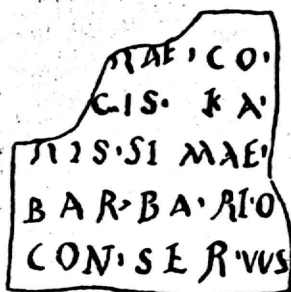 RAE · CO ·
CIS · KA ·
RIS · SI MAE ·
BAR · BA · RIO
CON · SER · VVS